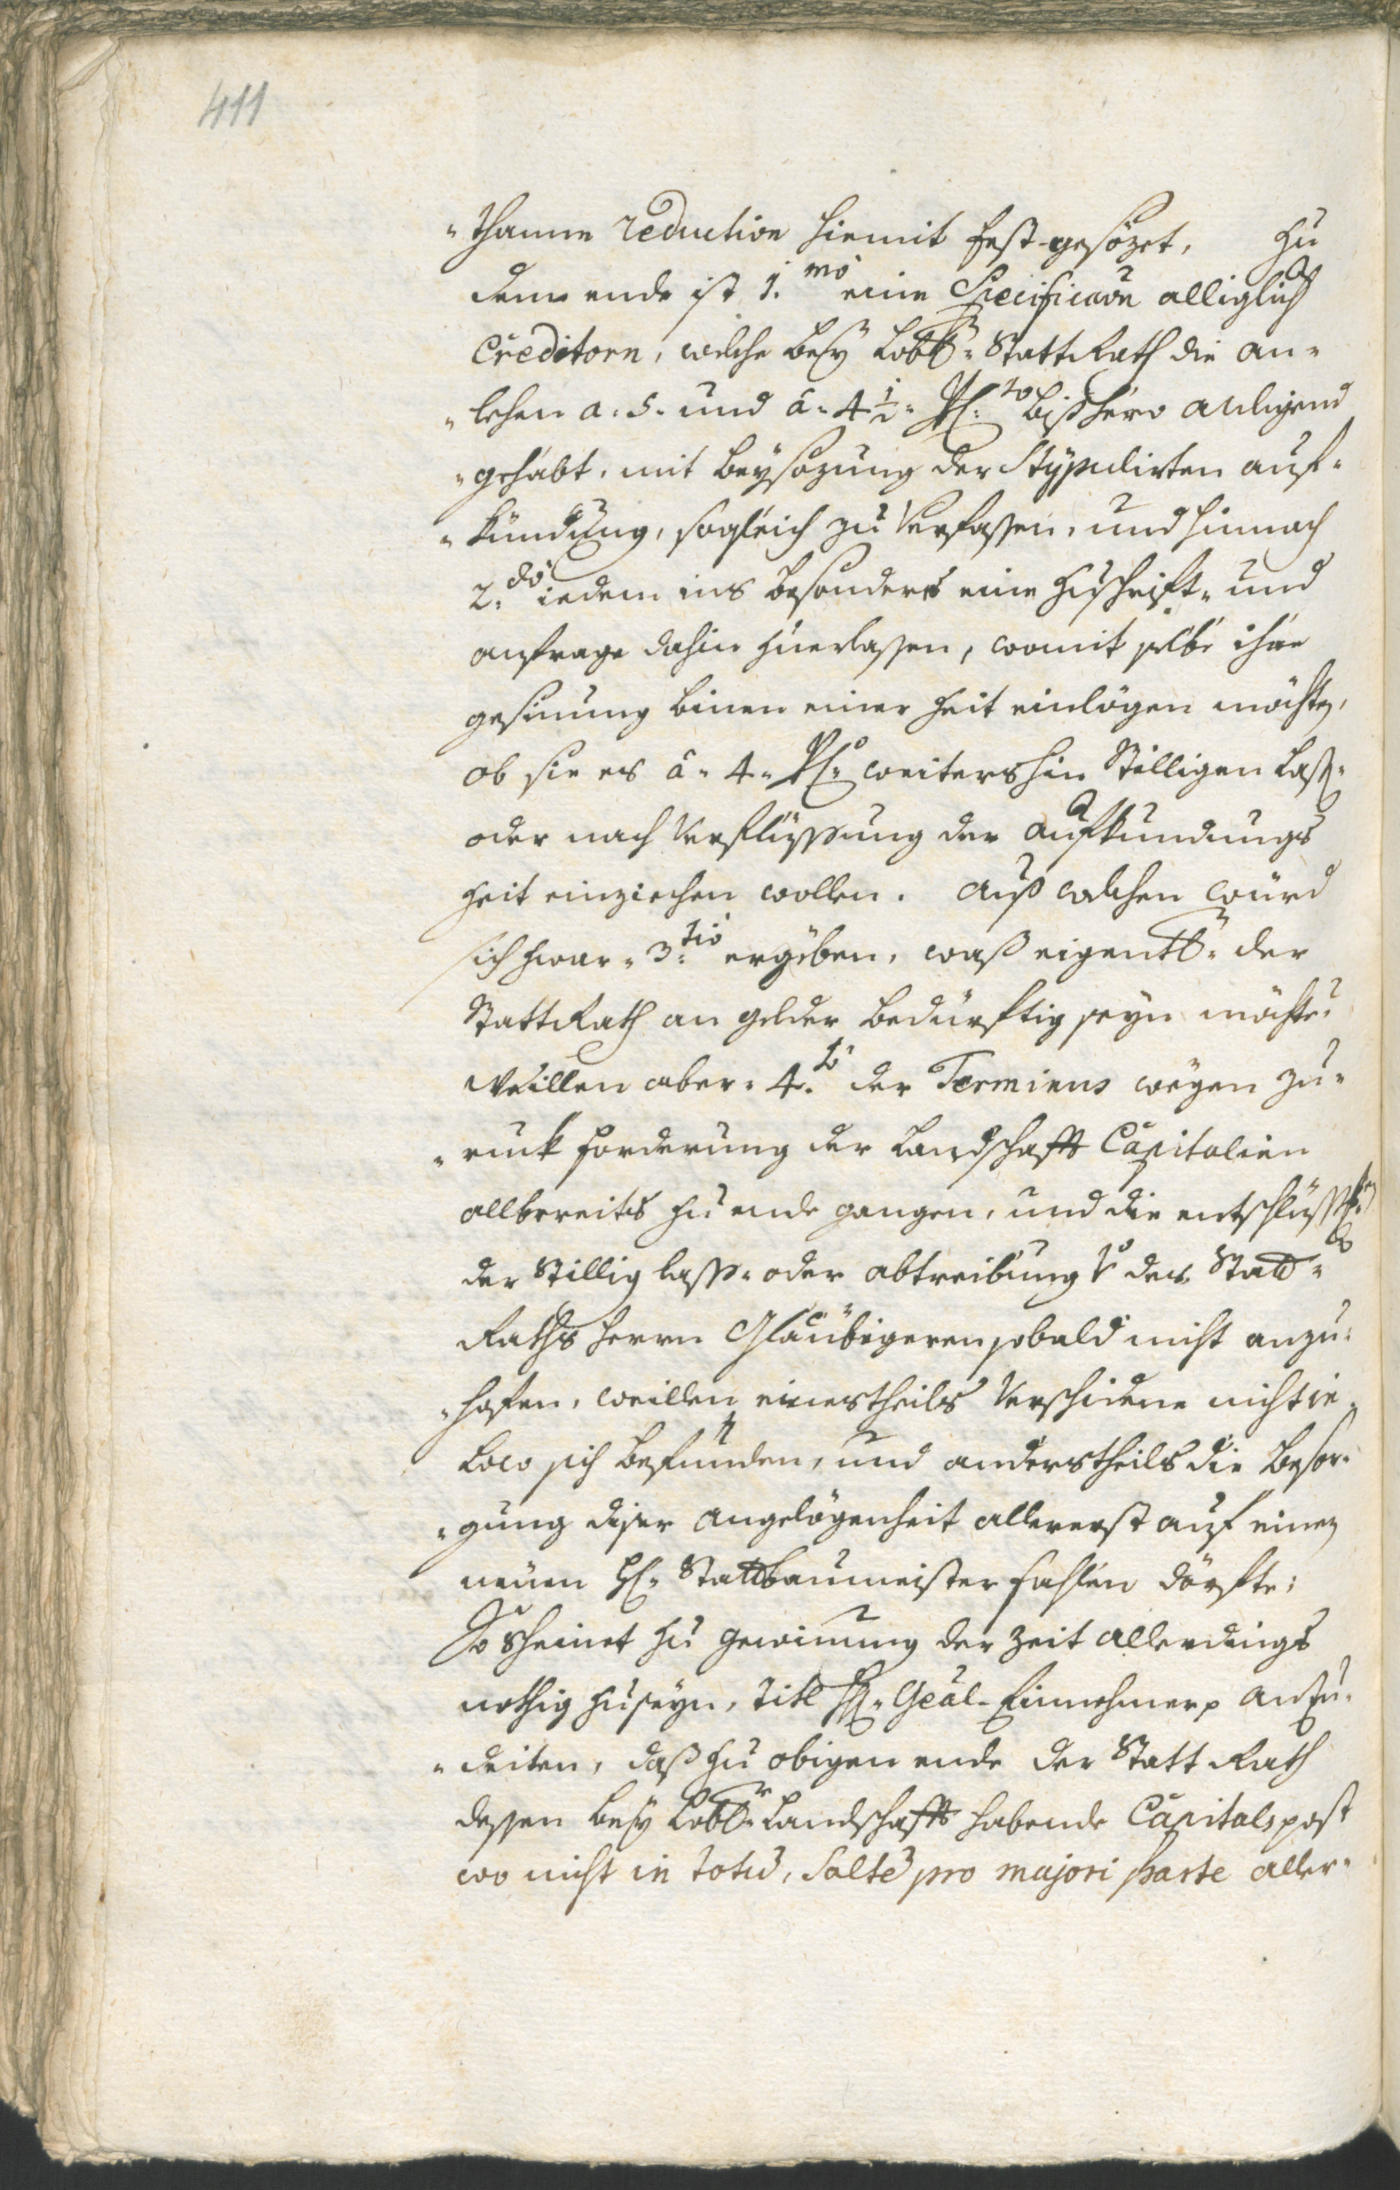 411
-thanne reduction hiemit fest-gesözet, Zu
dem ende ist 1.mo eine Specificaôn alliglich
Creditorn, welche bey Lobl: StattRath die an-
-lehen a: 5. und à 4½ P:to bißhero anligend
-gehabt, mit beysözung der Stÿpulirten auf-
-kündung, sogleich zu verfassen, und hinnach
2.do iedem ins besonders eine Zuschrift- und
anfrage dahin Zuerlassen, womit selbe ihre
gesinnung binen einer Zeit einlögen möchten,
ob sie es à 4. P: weitershin Stilligen lass-
oder nach verflüssung der aufkundungs
Zeit einziechen wollen. Auß welchen würd
sich Zwar 3.tio ergeben, waß eigentl: der
StattRath an gelder bedürftig seyn möchte.
Weillen aber 4.to der Terminus wegen zu-
-ruck forderung der Landschafft Capitalien
allbereits Zu ende gangen, und die entschlüssung
der Stillig lass- oder abtreibung der Statt-
Raths herrn Glaübigeren sobald nicht anzu-
-hofen, weillen einestheils verschidene nicht in
Loco sich befünden, und anderstheils die besor-
-gung diser angelögenheit allererst auf einen
neüen H: Stattbaumeister fahlen dörfte:
So scheinet Zu gewinnung der Zeit allerdings
nothig Zuseyn, Titl H: Geâl-Einnehmer anzu-
-deiten, daß Zu obigen ende der Statt Rath
dessen bey Lobl:r Landschafft habende Capitalspost
wo nicht in totû, saltê pro majori parte aller-